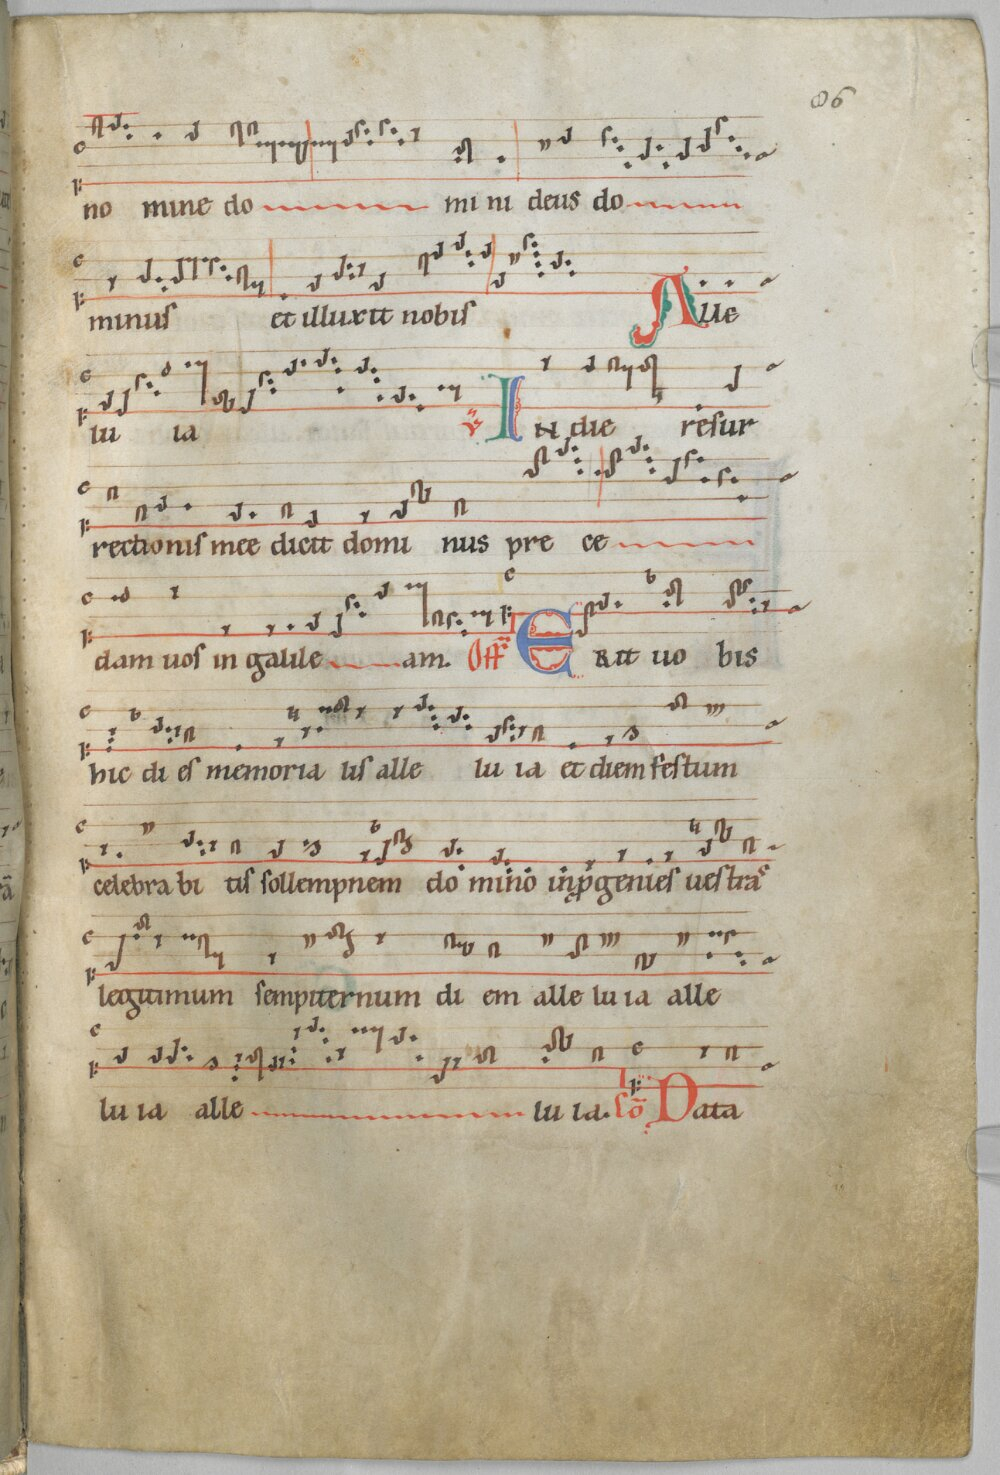 86
no mine do mi ni deus do
minus et illuxit nobis Alle
lu ia ℣ In die resur
rectionis mee dicit domi nus pre ce
dam uos in galile am. Off Erit uo bis
hic di es memoria lis alle lu ia et diem festum
celebra bi tis sollempnem do mino in ꝓgenies uestras
legitimum sempiternum di em alle lu ia alle
lu ia alle lu ia. Cō Data